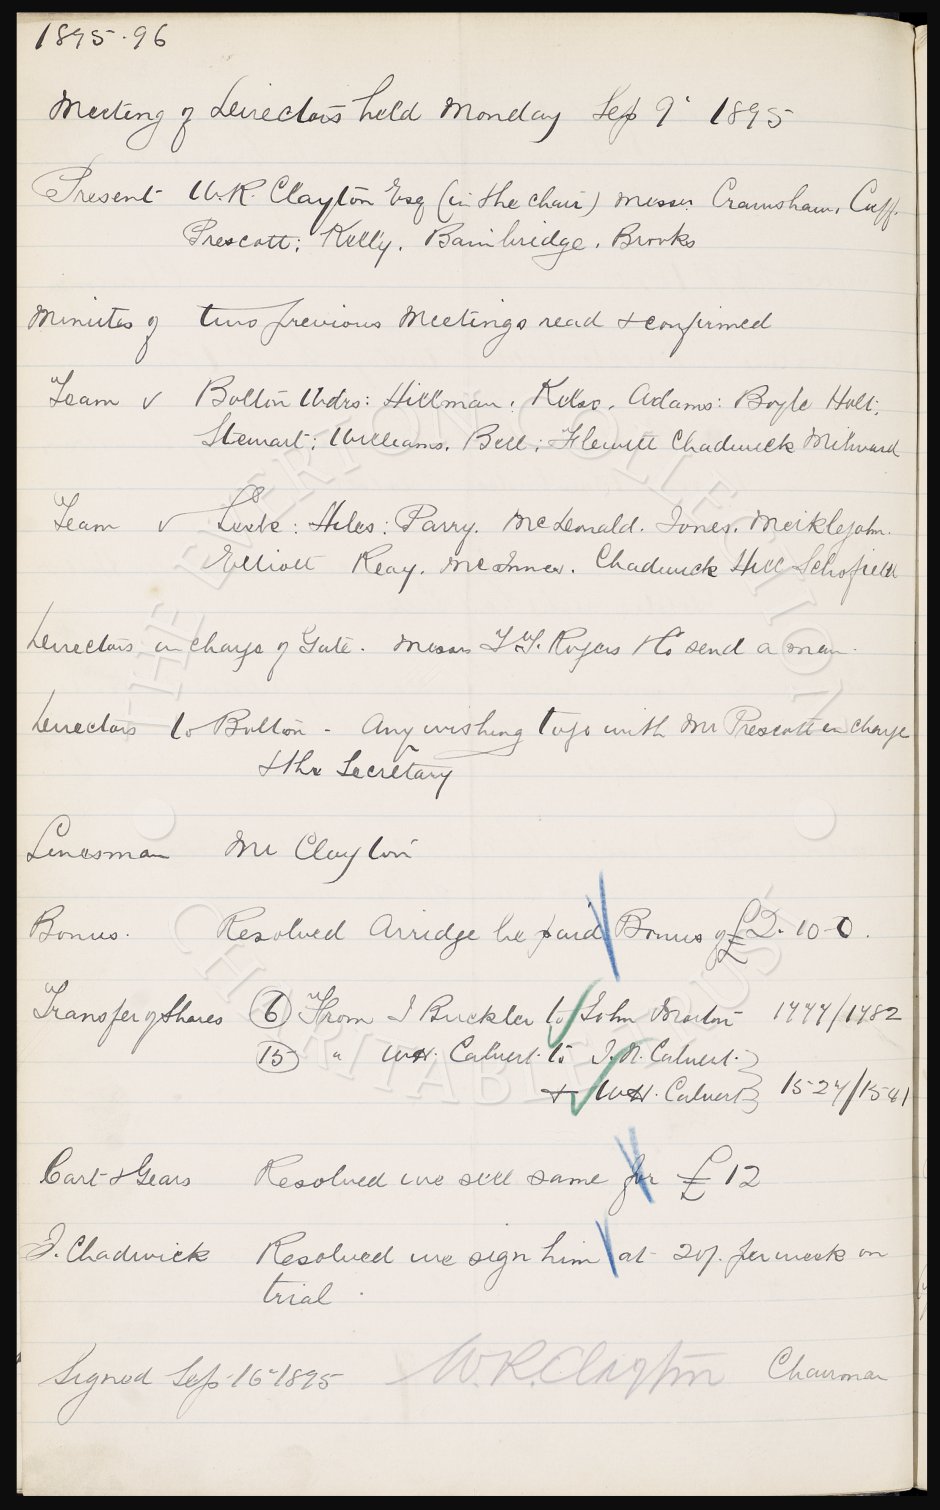 1895-96
Meeting of Directors held Monday Sep 9" 1895
Present W.R. Clayton Esq (in the chair) Messrs Cramshaw, Cuff,
Prescott; Kelly, Bainbridge, Brooks
Minutes of two previous Meetings read & confirmed
Team v Bolton Wdrs: Hillman; Kelso, Adams: Boyle Holt;
Stewart; Williams, Bell; Flewitt Chadwick Milward
Team v Leek: Hiles: Parry, McDonald, Jones, Meiklejohn
Elliott Reay, McInnes, Chadwick Hill Schofield
Directors in charge of Gate - Messrs T.T. Rogers & Co send a man.
Directors to Bolton - Any wishing to go with Mr Prescott in charge
& the Secretary
Linesman Mr Clayton
Bonus. Resolved Arridge be paid Bonus of £2-10-0.
Transfer of Shares 6 From J Buckler to John Morton 1777/1782
15 " W.H. Calvert to J.N. Calvert
& W.H. Calvert 1527/1541
Cart & Gears Resolved we sell same for £12
J. Chadwick Resolved we sign him at 20/. per week on
trial.
Signed Sep 16" 1895 W.R. Clayton Chairman
THE EVERTON COLLECTION
CHARITABLE TRUST